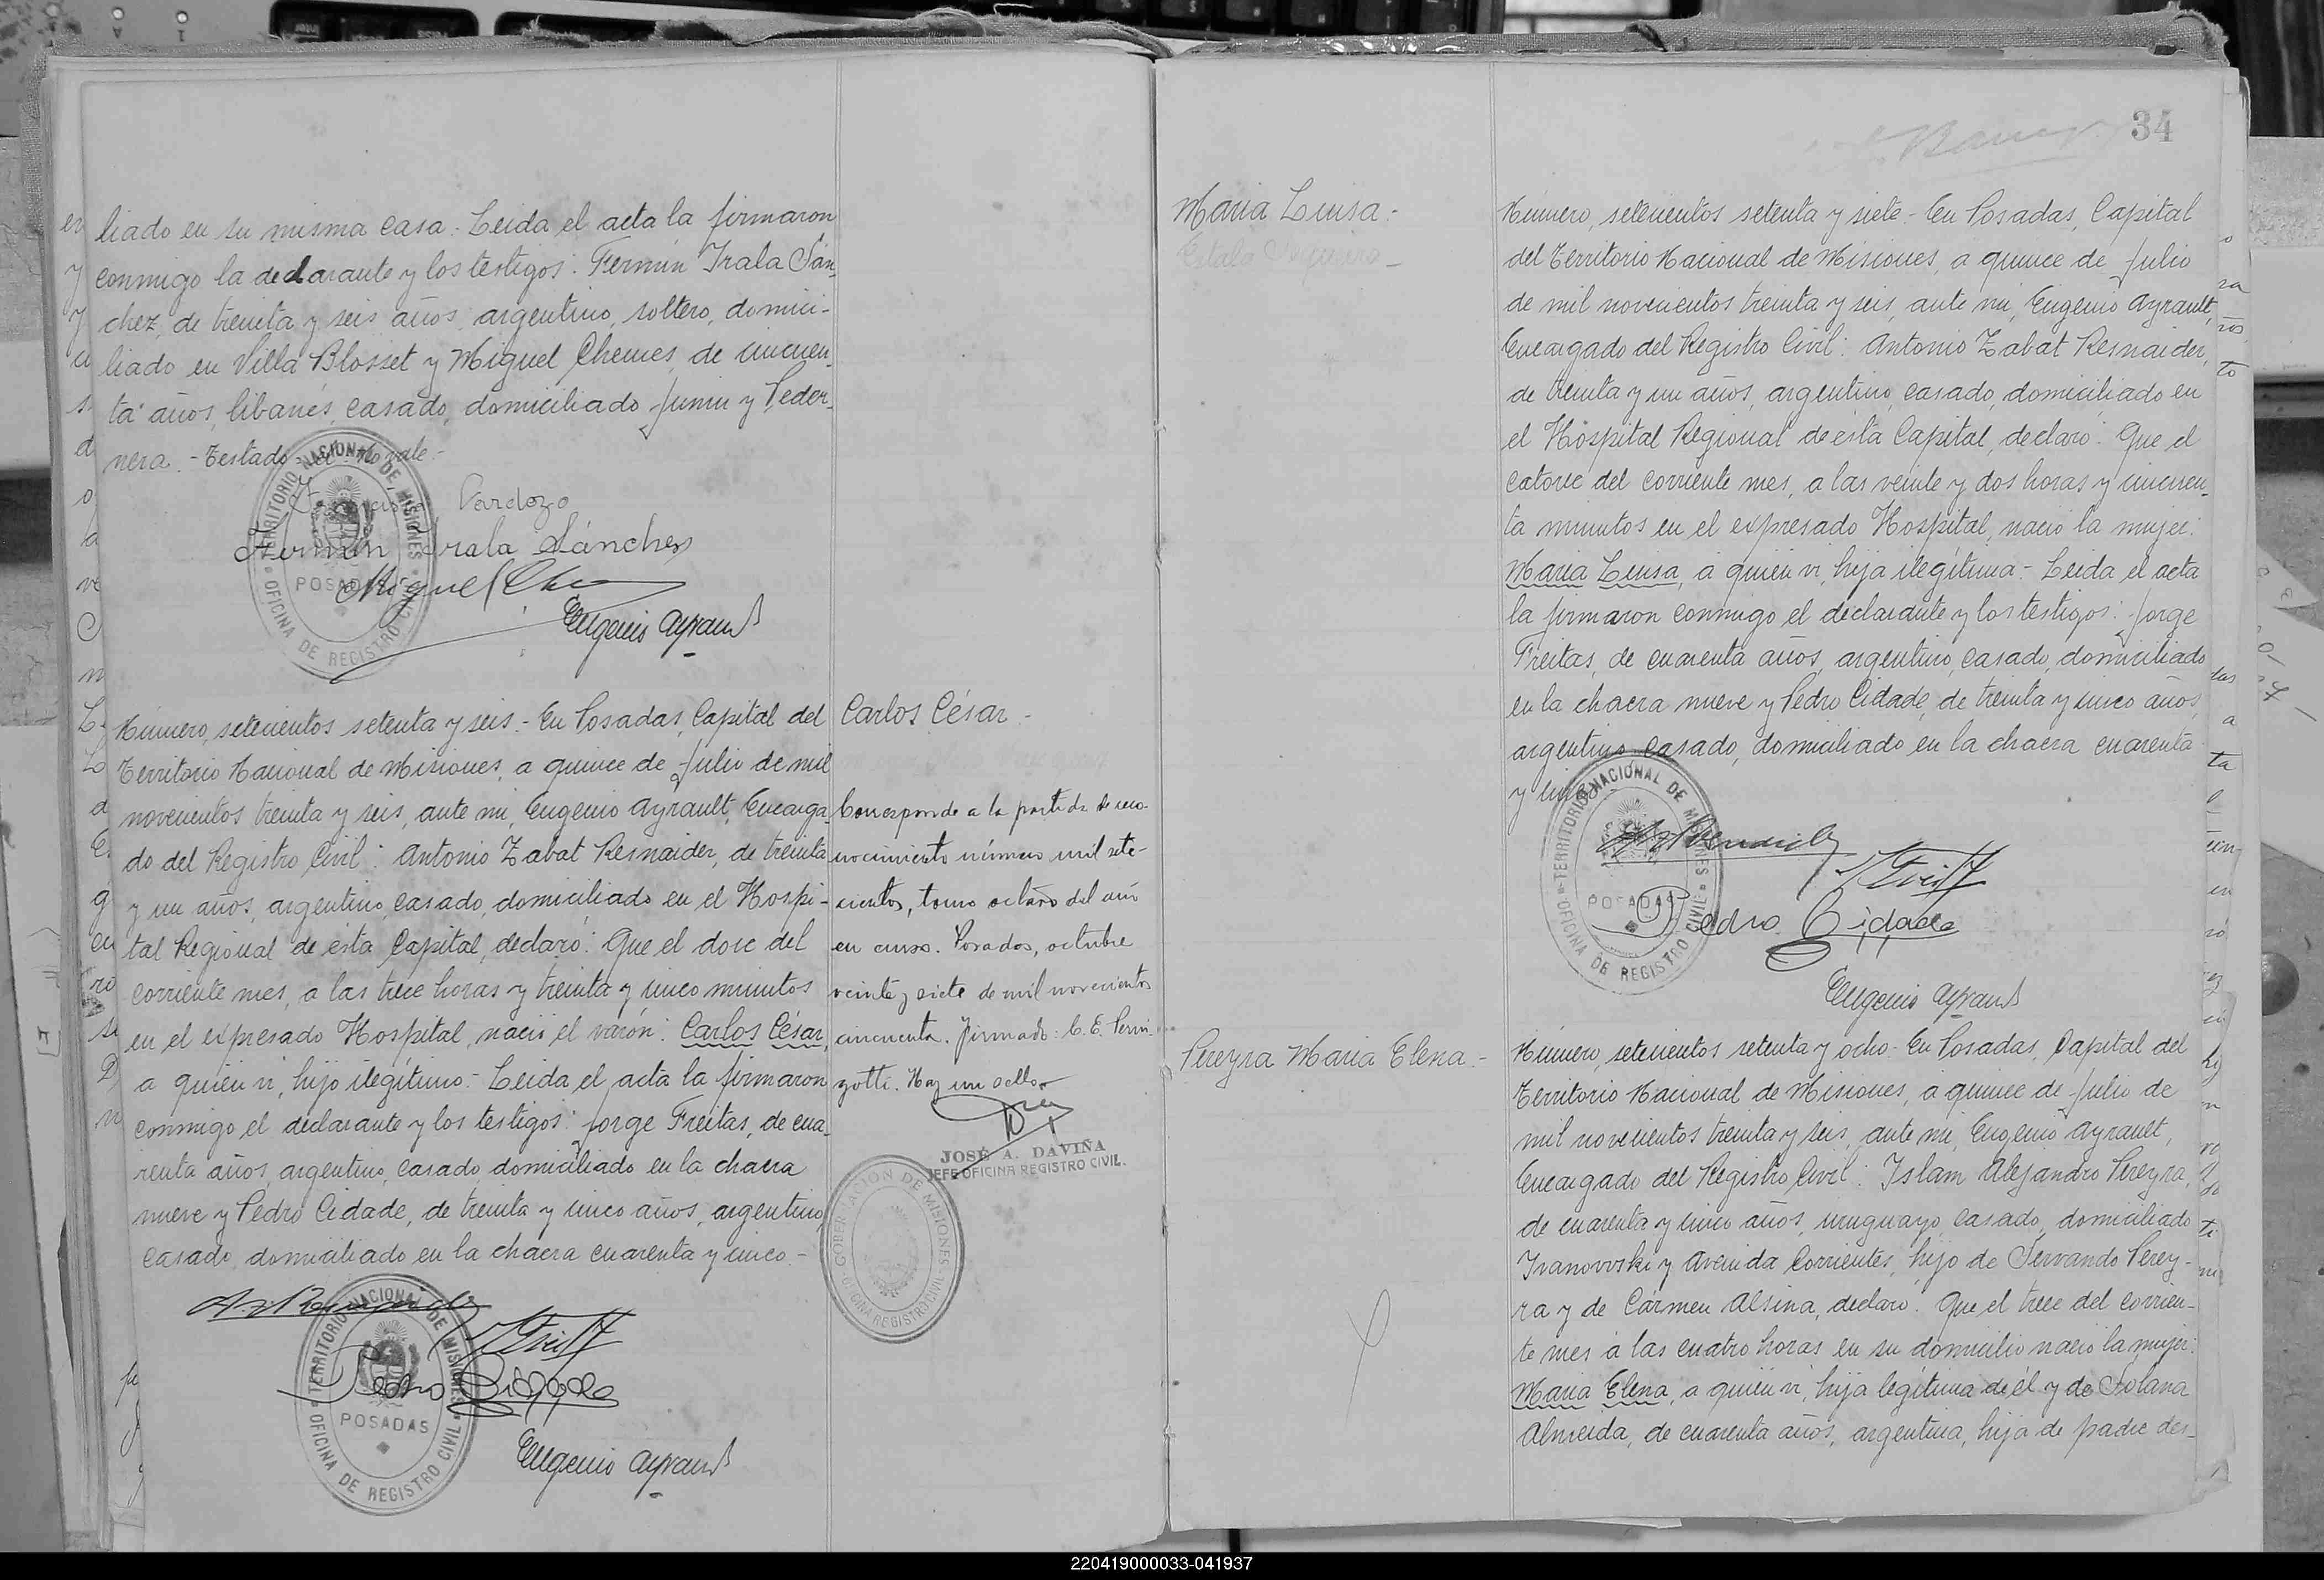 liado en su misma casa.- Leida el acta la firmaron
conmigo la declarante y los testigos: Fermin Irala Sán-
chez, de treinta y seis años, argentino, soltero, domici-
liado en Villa Blosset y Miguel Chemes, de cincuen-
ta años, libanés, casado, domiciliado Junin y Peder-
nera.- Testado
no vale.-
Cardozo
Fermin Irala Sánchez
Miguel
Eugenio Ayrault
TERRITORIO NACIONAL DE MISIONES
POSADAS
OFICINA DE REGISTRO CIVIL
Número, setecientos setenta y seis.- En Posadas, Capital del
Territorio Nacional de Misiones, a quince de Julio de mil
novecientos treinta y seis, ante mi, Eugenio Ayrault, Encarga-
do del Registro Civil: Antonio Zabat Resnaider, de treinta
y un años, argentino, casado, domiciliado en el Hospi-
tal Regional de ésta Capital, declaró: Que el doce del
corriente mes, a las trece horas y treinta y cinco minutos
en el expresado Hospital, nació el varón: Carlos César,
a quien vi, hijo ilegítimo.- Leida el acta la firmaron
conmigo el declarante y los testigos: Jorge Freitas, de cua-
renta años, argentino, casado, domiciliado en la chacra
nueve y Pedro Cidade, de treinta y cinco años, argentino,
casado, domiciliado en la chacra cuarenta y cinco.-
Pedro Cidade
Eugenio Ayrault
TERRITORIO NACIONAL DE MISIONES
POSADAS
OFICINA DE REGISTRO CIVIL
Carlos César.-
Corresponde a la partida de reco-
nocimiento número mil sete-
cientos, tomo octavo del año
en curso. Posadas, octubre
veinte y siete de mil novecientos
cincuenta. Firmado: C. E.
Hay un sello.
JOSÉ A. DAVIÑA
JEFE OFICINA REGISTRO CIVIL.
GOBERNACION DE MISIONES
OFICINA REGISTRO CIVIL
34
Maria Luisa.-
Número, setecientos setenta y siete.- En Posadas, Capital
del Territorio Nacional de Misiones, a quince de Julio
de mil novecientos treinta y seis, ante mi, Eugenio Ayrault,
Encargado del Registro Civil: Antonio Zabat Resnaider,
de treinta y un años, argentino, casado, domiciliado en
el Hospital Regional de ésta Capital, declaró: Que el
catorce del corriente mes, a las veinte y dos horas y cincuen-
ta minutos en el expresado Hospital, nació la mujer:
Maria Luisa, a quien vi, hija ilegítima.- Leida el acta
la firmaron conmigo el declarante y los testigos: Jorge
Freitas, de cuarenta años, argentino, casado, domiciliado
en la chacra nueve y Pedro Cidade, de treinta y cinco años,
argentino, casado, domiciliado en la chacra cuarenta
y cinco.-
Pedro Cidade
Eugenio Ayrault
TERRITORIO NACIONAL DE MISIONES
POSADAS
OFICINA DE REGISTRO CIVIL
Pereyra Maria Elena.-
Número, setecientos setenta y ocho.- En Posadas, Capital del
Territorio Nacional de Misiones, a quince de Julio de
mil novecientos treinta y seis, ante mi, Eugenio Ayrault,
Encargado del Registro Civil: Islam Alejandro Pereyra,
de cuarenta y cinco años, uruguayo, casado, domiciliado
Ivanovski y Avenida Corrientes, hijo de Servando Perey-
ra y de Cármen Alsina, declaró: Que el trece del corrien-
te mes a las cuatro horas en su domicilio nació la mujer:
Maria Elena, a quien vi, hija legítima de él y de Solana
Almeida, de cuarenta años, argentina, hija de padre des-
220419000033-041937